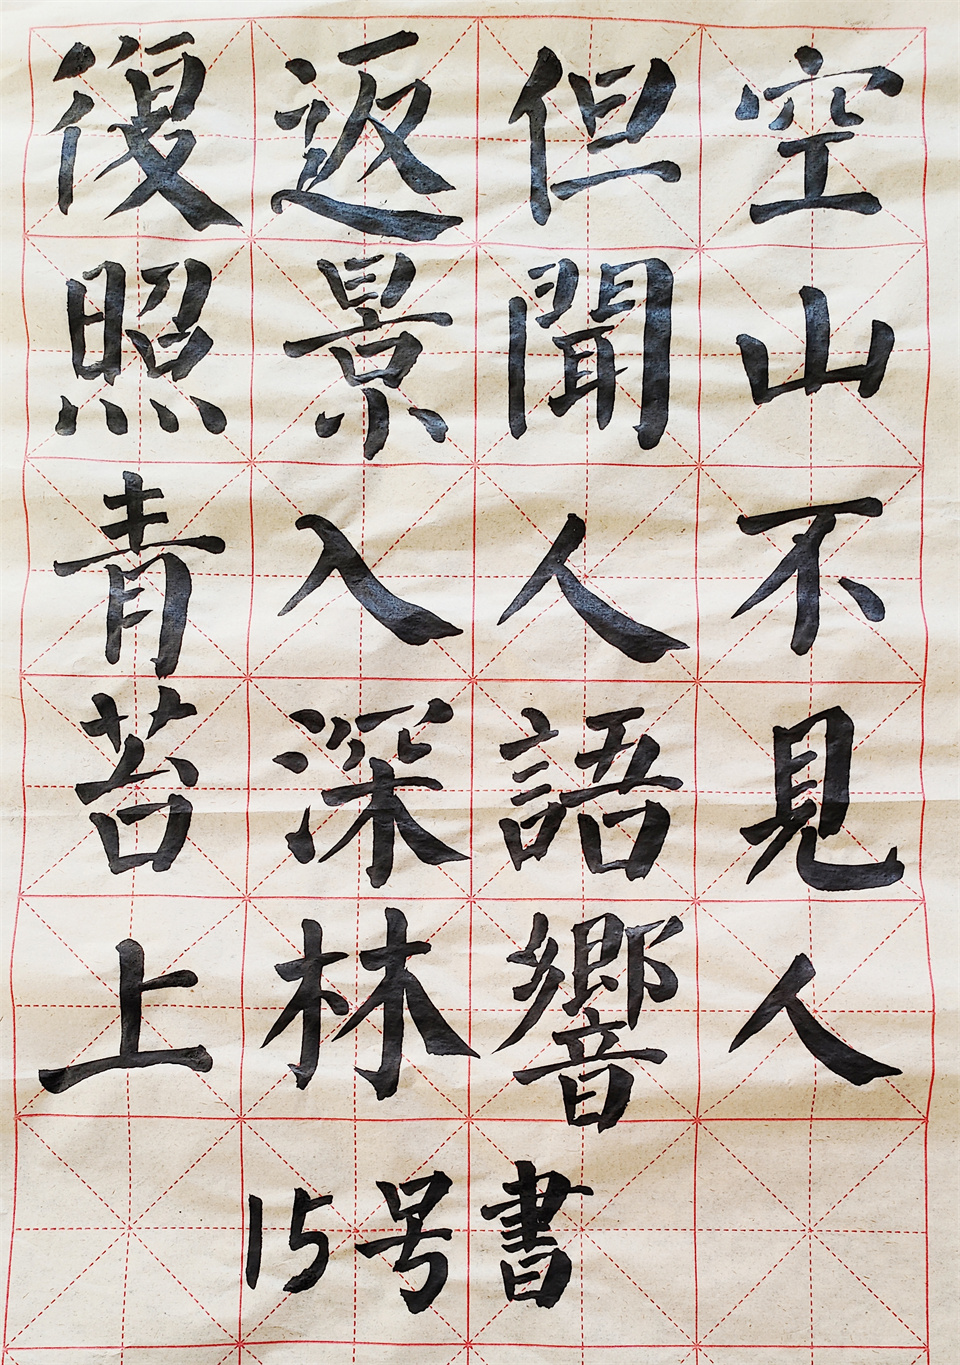 空山不見人
但聞人語響
返景入深林
復照青苔上
15号書